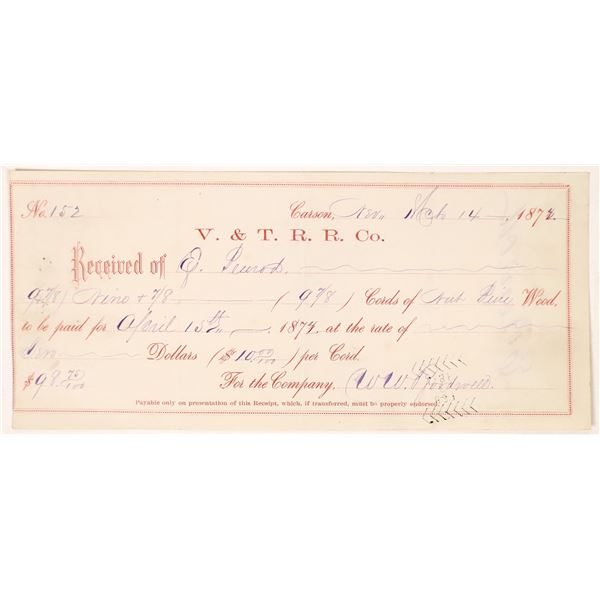 No. 152 Carson, Nev, Mch 14 1873
V. & T. R. R. Co.
Received of E. Penrod
9 7/8 Nine + 7/8 ( 9 7/8 ) Cords of Nut Pine Wood,
to be paid for April 15th 1873 at the rate of
Ten Dollars ($ 10 00/100 ) per Cord.
$ 98 75/100 For the Company, W W
Payable only on presentation of this Receipt, which, if transferred, must be properly endorsed.